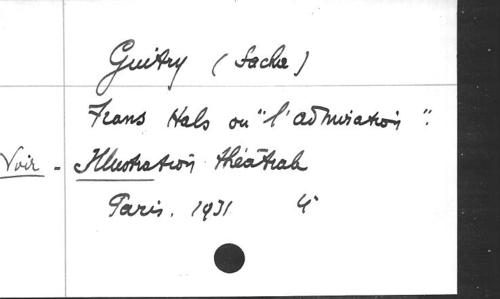 Guitry (Sacha)
Frans Hals ou "l'admiration".
Voir - Illustration théâtrale
Paris. 1931 4°